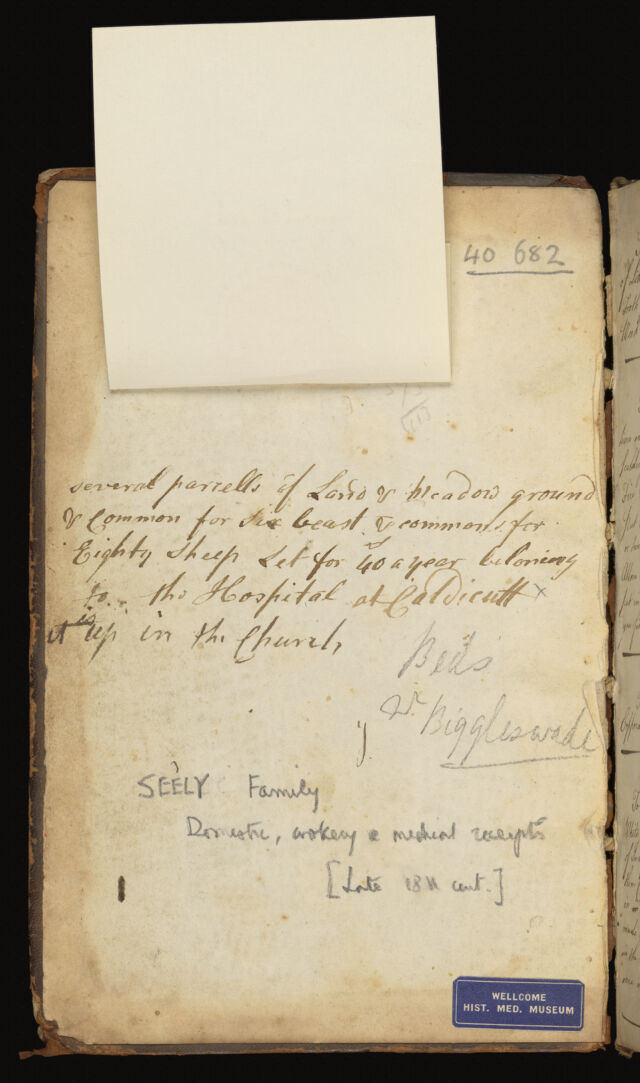 40 682
several parcells of Land & Meadow ground
& Common for six beast & commons for
Eighty Sheep Let for 40 a year beloning
to the Hospital at Caldicutt x
it is up in the Church
Beds
Nr Biggleswade
SEELY Family
Domestic, cookery & medical receipts
[Late 18th cent.]
WELLCOME
HIST. MED. MUSEUM